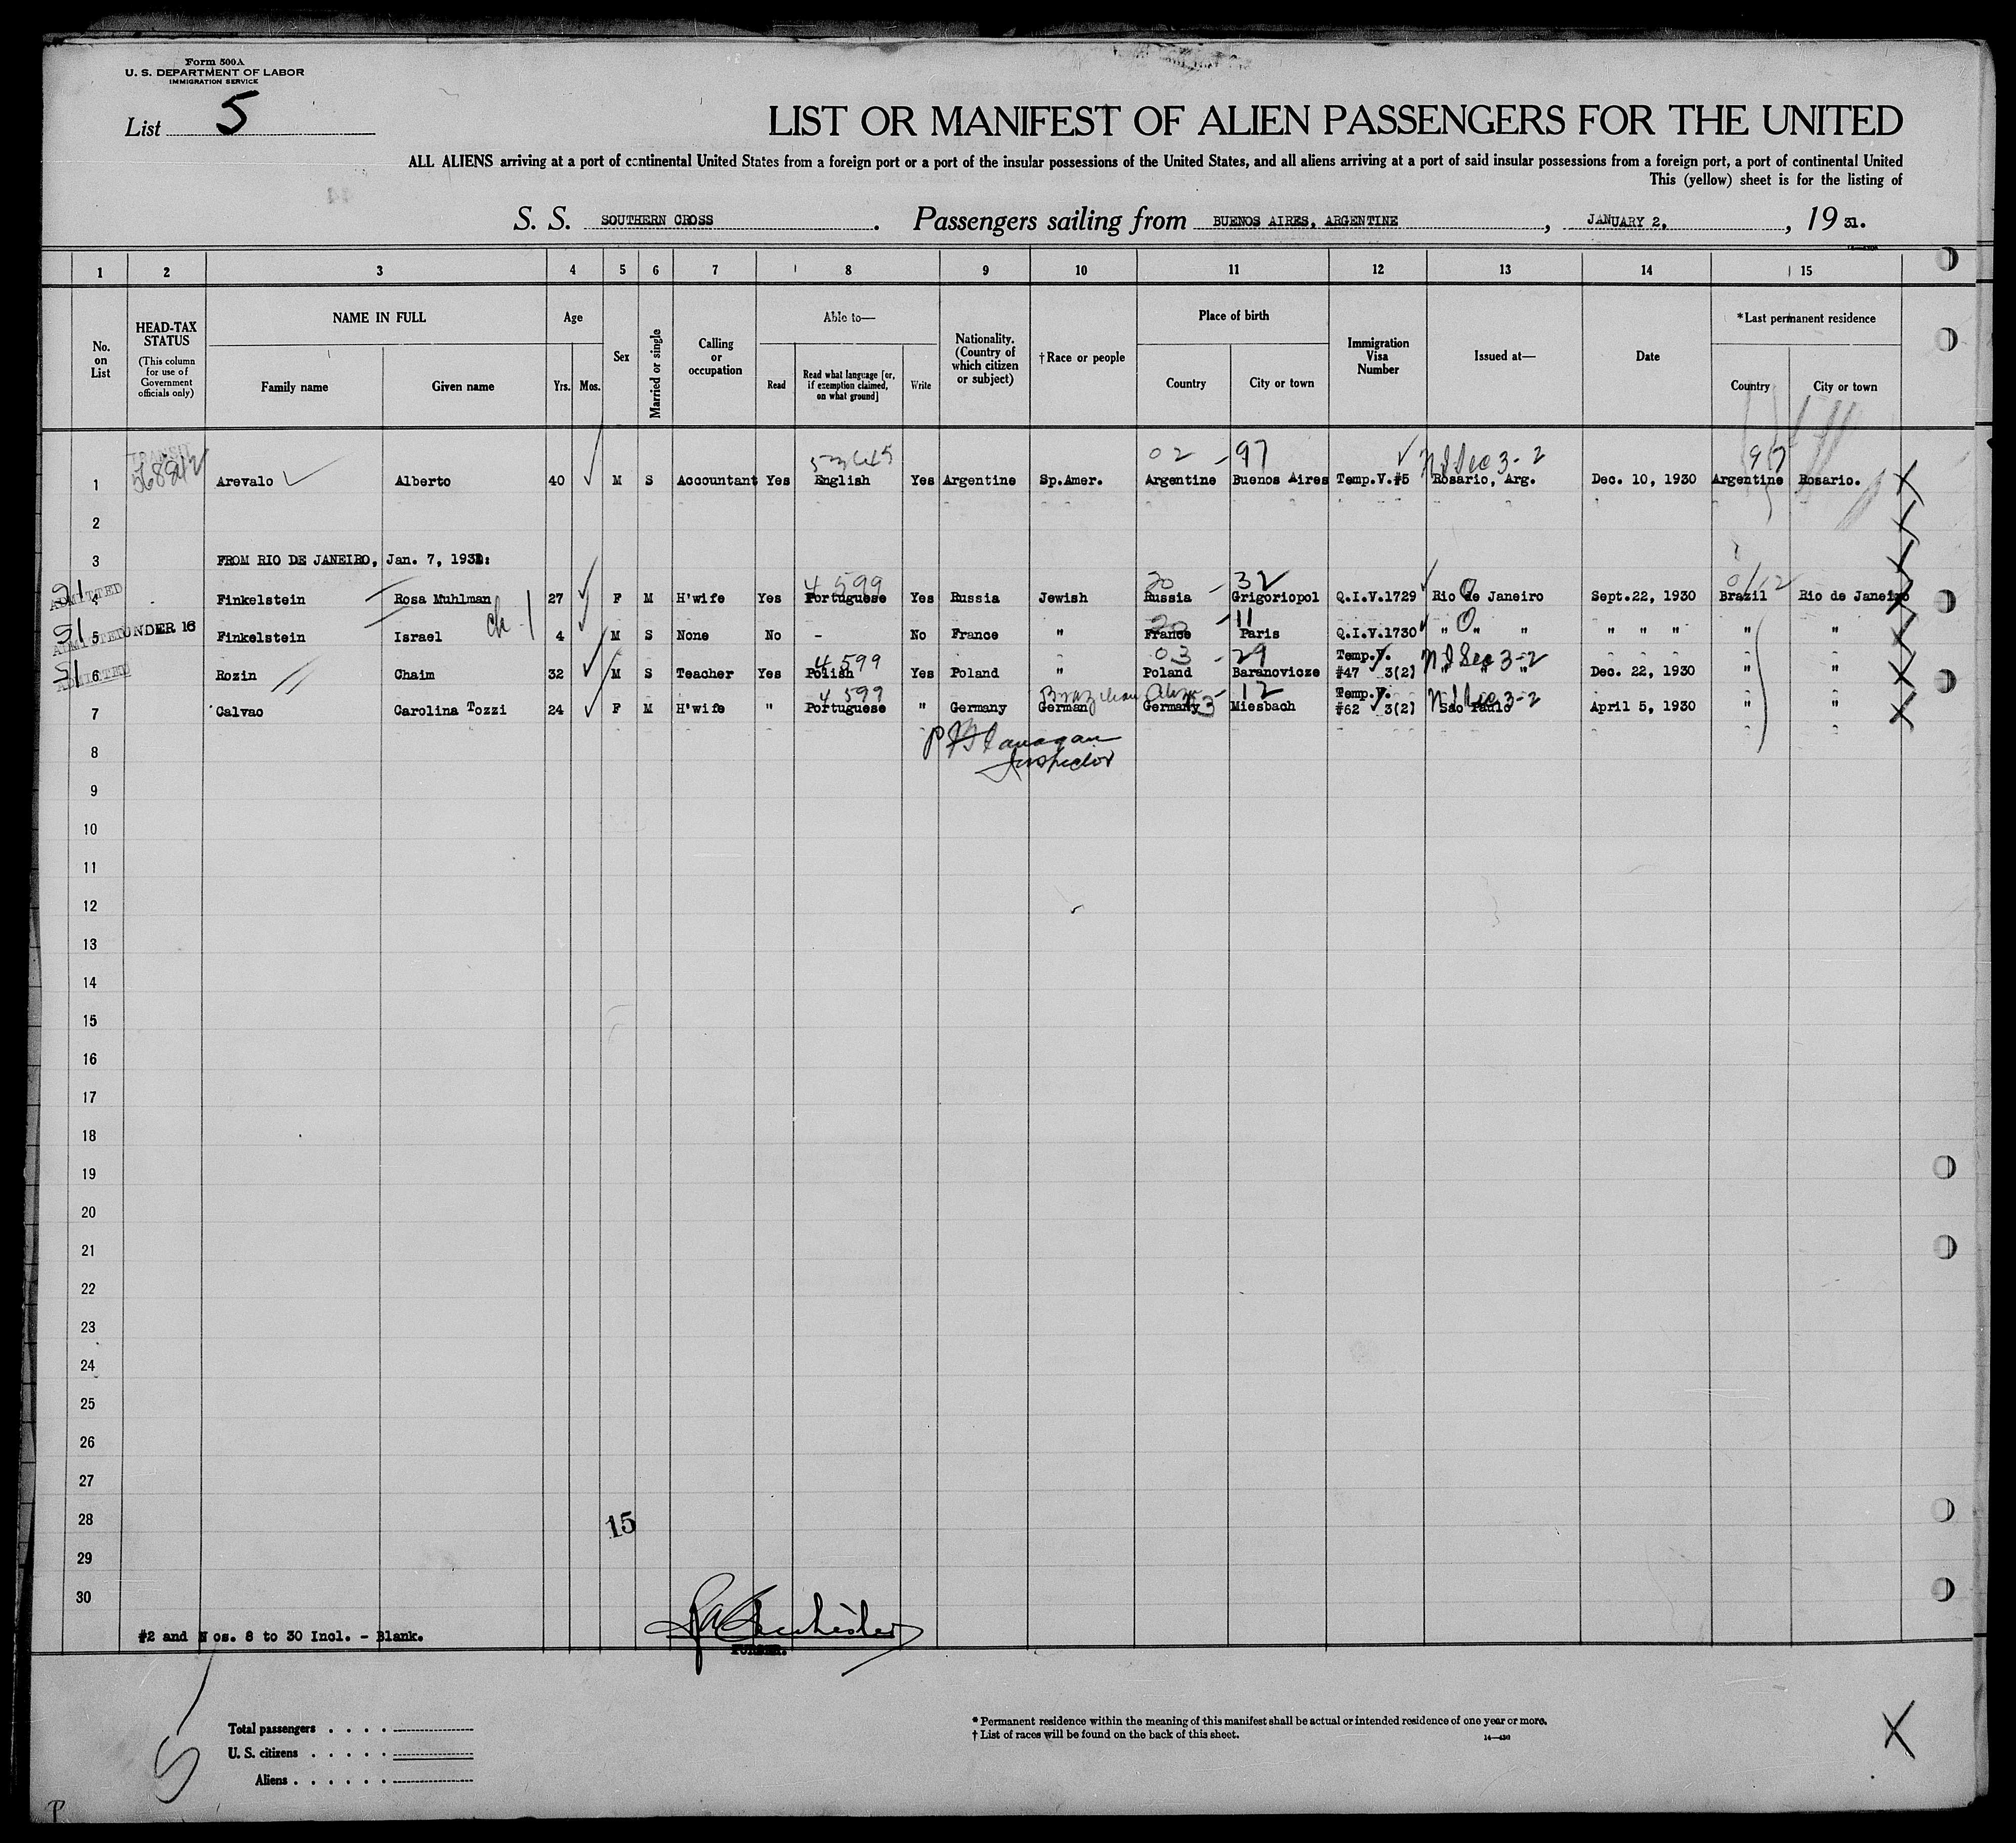 Form 500A
U. S. DEPARTMENT OF LABOR
IMMIGRATION SERVICE
List 5
LIST OR MANIFEST OF ALIEN PASSENGERS FOR THE UNITED
ALL ALIENS arriving at a port of continental United States from a foreign port or a port of the insular possessions of the United States, and all aliens arriving at a port of said insular possessions from a foreign port, a port of continental United
This (yellow) sheet is for the listing of
S. S. SOUTHERN CROSS. Passengers sailing from BUENOS AIRES, ARGENTINE, JANUARY 2, , 19 31.
1 2 3 4 5 6 7 8 9 10 11 12 13 14 15
No. on List
HEAD-TAX STATUS
(This column for use of Government officials only)
NAME IN FULL
Family name
Given name
Age
Yrs. Mos.
Sex
Married or single
Calling or occupation
Able to—
Read
Read what language [or, if exemption claimed, on what ground]
Write
Nationality. (Country of which citizen or subject)
†Race or people
Place of birth
Country
City or town
Immigration Visa Number
Issued at—
Date
*Last permanent residence
Country
City or town
TRANSIT
53645 02 - 97 N I Sec 3-2 97
1 Arevalo Alberto 40 M S Accountant Yes English Yes Argentine Sp.Amer. Argentine Buenos Aires Temp.V.#5 Rosario, Arg. Dec. 10, 1930 Argentine Rosario.
2
3 FROM RIO DE JANEIRO, Jan. 7, 1931:
4 599 20 - 32
ADMITTED
4 Finkelstein Rosa Muhlman 27 F M H'wife Yes Portuguese Yes Russia Jewish Russia Grigoriopol Q.I.V.1729 Rio de Janeiro Sept.22, 1930 Brazil Rio de Janeiro
ch-1 20 - 11
ADMITTED UNDER 16
5 Finkelstein Israel 4 M S None No - No France " France Paris Q.I.V.1730 " " " " " " " "
4 599 03 - 29 Temp.V. N I Sec 3-2
ADMITTED
6 Rozin Chaim 32 M S Teacher Yes Polish Yes Poland " Poland Baranovicze #47 3(2) " " " Dec. 22, 1930 " "
4 599 Brazilian - 12 Temp.V. 3-2
7 Calvao Carolina Tozzi 24 F M H'wife " Portuguese " Germany German Germany Miesbach #62 3(2) Sao Paulo April 5, 1930 " "
8
Inspector
9
10
11
12
13
14
15
16
17
18
19
20
21
22
23
24
25
26
27
28 15
29
30
#2 and Nos. 8 to 30 Incl. - Blank.
PURSER.
Total passengers
U. S. citizens
Aliens
* Permanent residence within the meaning of this manifest shall be actual or intended residence of one year or more.
† List of races will be found on the back of this sheet.
14—430